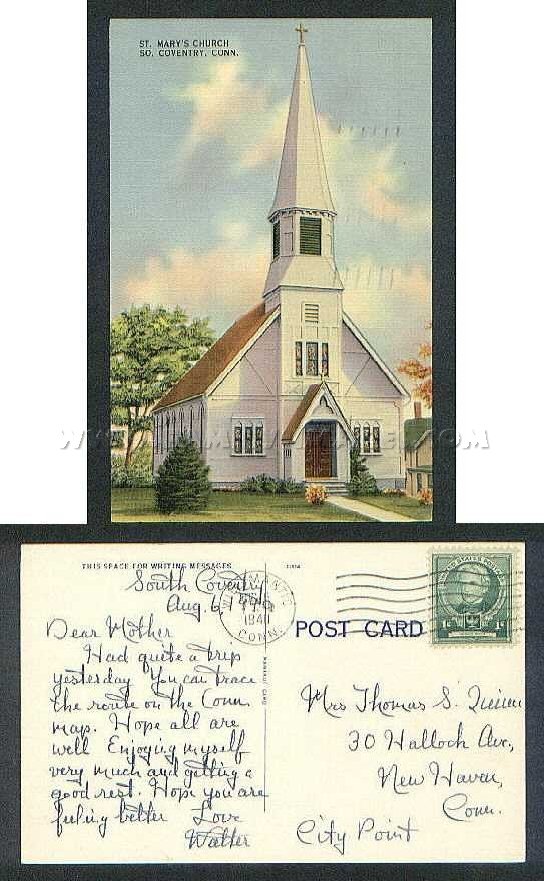 ST. MARY'S CHURCH
SO. COVENTRY, CONN.
THIS SPACE FOR WRITING MESSAGES
South Coventry
Aug. 6, 19
Dear Mother
Had quite a trip
yesterday You can trace
the route on the Conn.
map. Hope all are
well Enjoying myself
very much and getting a
good rest. Hope you are
feeling better Love
Walter
1940
CONN.
POST CARD
1¢
1¢
Mrs Thomas S. Quinn
30 Hallock Ave.,
New Haven,
Conn.
City Point